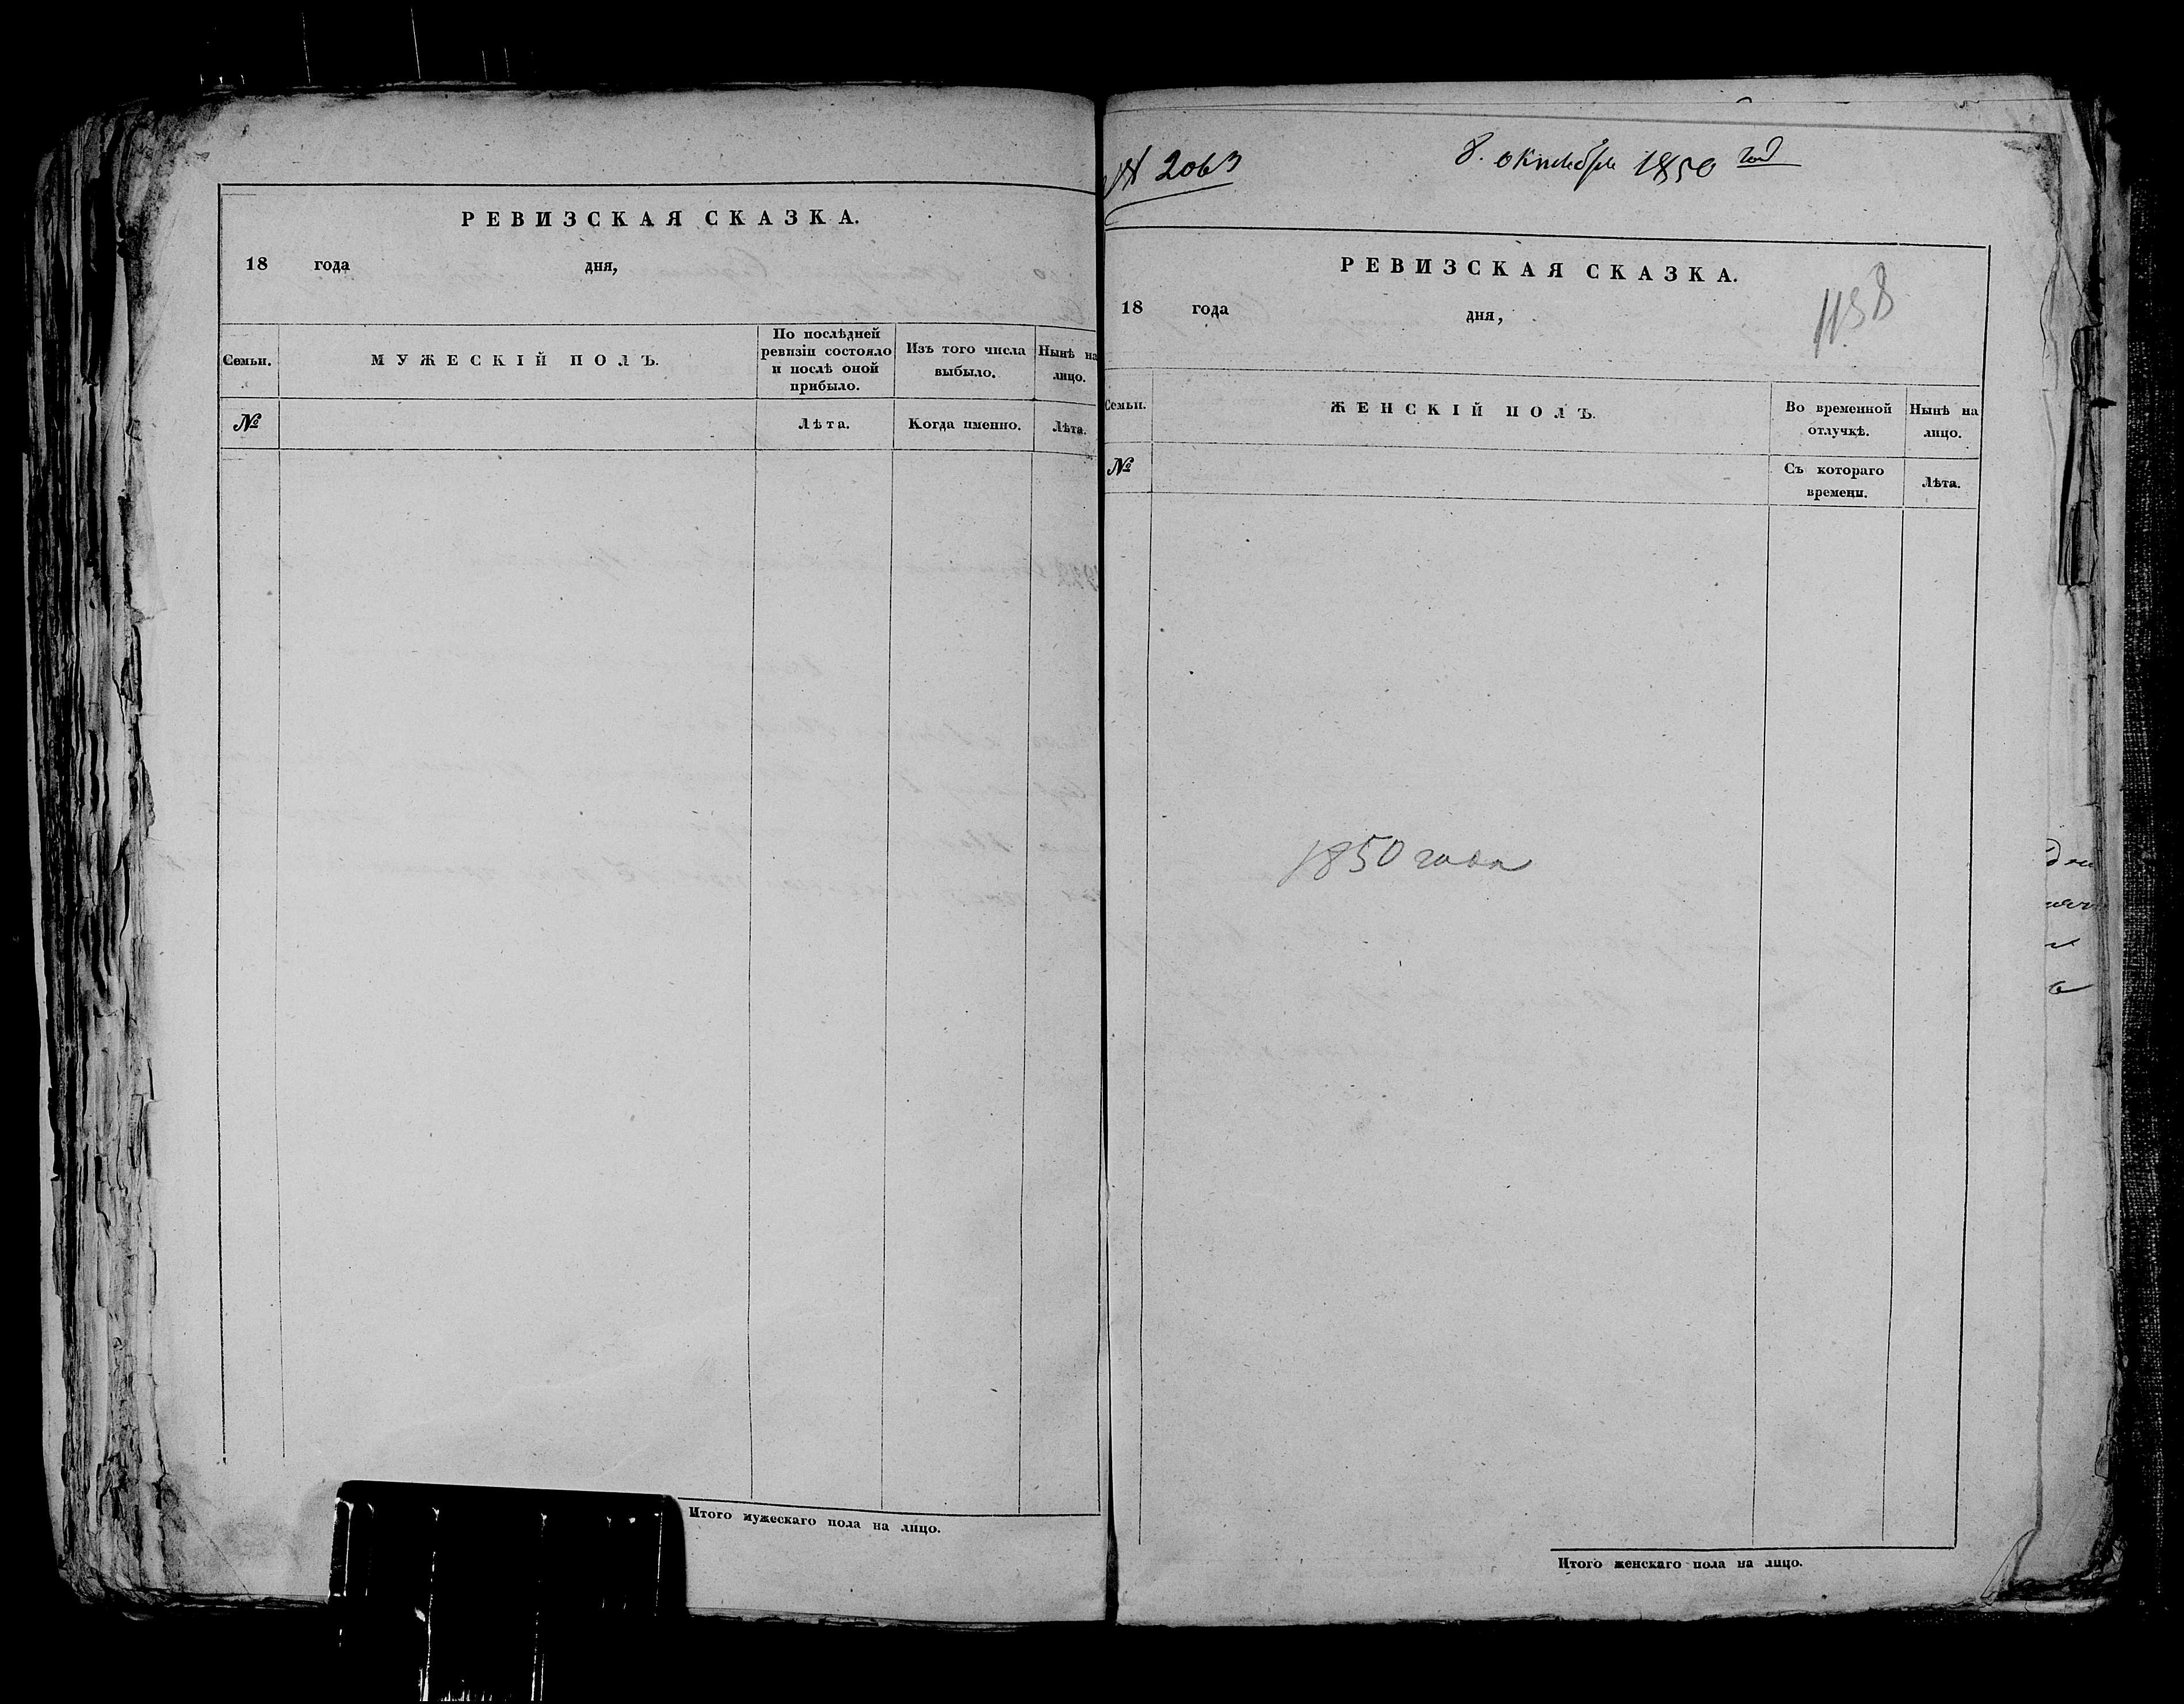 РЕВИЗСКАЯ СКАЗКА.
18 года дня,
Семьи.
МУЖЕСКІЙ ПОЛЪ.
По послѣдней
ревизіи состояло
и послѣ оной
прибыло.
Изъ того числа
выбыло.
Нынѣ на
лицо.
№
Лѣта.
Когда именно.
Лѣта.
Итого мужескаго пола на лицо.
№ 2063
8. октября 1850 год
РЕВИЗСКАЯ СКАЗКА.
18 года дня,
1158
Семьи.
ЖЕНСКІЙ ПОЛЪ.
Во временной
отлучкѣ.
Нынѣ на
лицо.
№
Съ котораго
времени.
Лѣта.
1850 года
Итого женскаго пола на лицо.